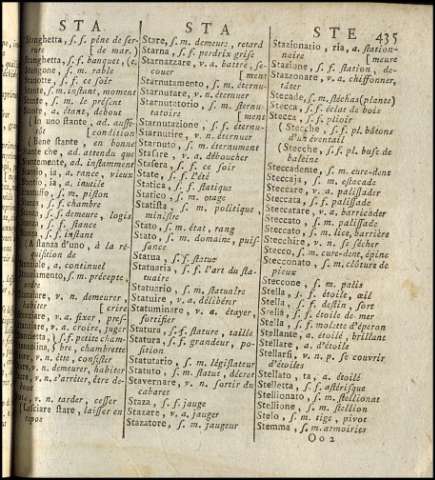 STA STA STE 435
Stanghetta, s. f. pêne de ser-
rure [de mar.)
s. f. banquet, (t.
Stangone, s. m. rable
s. f. ce soir
s. m. instant, moment
s. m. le présent
a. étant, debout
(In uno stante, ad. aussi-
[condition
(Bene stante, en bonne
che, ad. attendu que
ad. instamment
ia, a. rance, vieux
ia, a. inutile
s. m. piston
s. f. chambre
s. f. demeure, logis
s. f. stance
s. f. instant
A stanza d'uno, à la ré-
quisition de
a. continuel
s. m. précepte,
ordre
v. n. demeurer,
habiter [crire
v. a. fixer, pres-
v. a. croire, juger
s. f. petite cham-
s. f. chambrette
v. n. être, consister
v. n. demeurer, habiter
v. n. s'arrêter, être de-
bout
v. n. tarder, cesser
(Lasciare stare, laisser en
repos
Stare, s. m. demeure, retard
Starna, s. f. perdrix grise
Starnazzare, v. a. battre, se-
couer [ment
Starnutamento, s. m. éternu-
Starnutare, v. n. éternuer
Starnutatorio, s. m. sternu-
tatoire [ment
Starnutazione, s. f. éternu-
Starnutire, v. n. éternuer
Starnuto, s. m. éternument
Stasire, v. a. déboucher
Stasera, s. f. ce soir
State, s. f. l'été
Statica, s. f. statique
Statico, s. m. otage
Statista, s. m. politique,
ministre
Stato, s. m. état, rang
Stato, s. m. domaine, puis-
sance
Statua, s. f. statue
Statuaria, s. f. l'art du sta-
tuaire
Statuario, s. m. statuaire
Statuire, v. a. délibérer
Statuminare, v. a. étayer,
fortifier
Statura, s. f. stature, taille
Statura, s. f. grandeur, po-
sition
Statutario, s. m. législateur
Statuto, s. m. statut, décret
Stavernare, v. n. sortir du
cabaret
Staza, s. f. jauge
Stazare, v. a. jauger
Stazatore, s. m. jaugeur
Stazionario, ria, a. station-
naire [meure
Stazione, s. f. station, de-
Stazzonare, v. a. chiffonner,
tâter
Stecade, s. m. stéchas (plante)
Stecca, s. f. éclat de bois
Stecca, s. f. plioir
(Stecche, s. f. pl. bâtons
d'un éventail
(Stecche, s. f. pl. busc de
baleine
Steccadente, s. m. cure-dent
Steccaja, s. m. estacade
Steccare, v. a. palissader
Steccata, s. f. palissade
Steccatare, v. a. barricader
Steccato, s. m. palissade
Steccato, s. m. lice, barrière
Stecchire, v. n. se sécher
Stecco, s. m. cure-dent, épine
Stecconato, s. m. clôture de
pieux
Steccone, s. m. palis
Stella, s. f. étoile, œil
Stella, s. f. destin, sort
Stella, s. f. étoile de mer
Stella, s. f. molette d'éperon
Stellante, a. étoilé, brillant
Stellare, a. d'étoile
Stellarsi, v. n. p. se couvrir
d'étoiles
Stellato, ta, a. étoilé
Stelletta, s. f. astérisque
Stellionato, s. m. stellionat
Stellione, s. m. stellion
Stelo, s. m. tige, pivot
Stemma, s. m. armoiries
Oo2